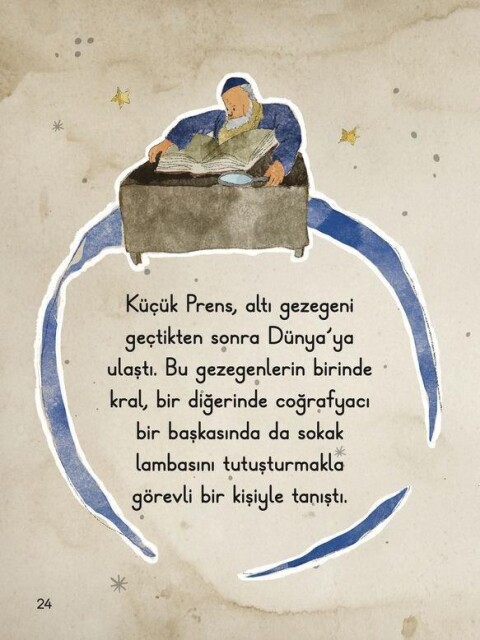 Küçük Prens, altı gezegeni
geçtikten sonra Dünya'ya
ulaştı. Bu gezegenlerin birinde
kral, bir diğerinde coğrafyacı
bir başkasında da sokak
lambasını tutuşturmakla
görevli bir kişiyle tanıştı.
24